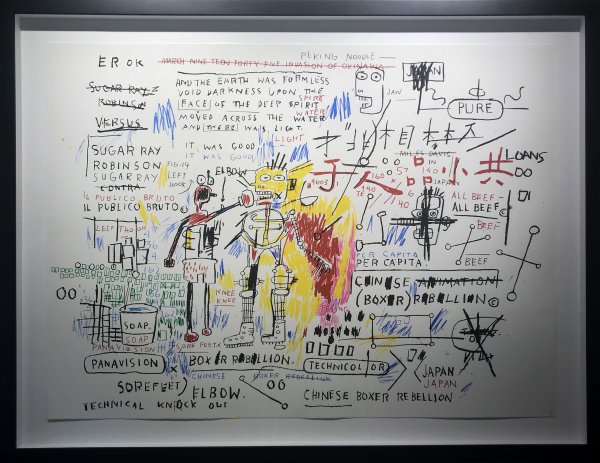 PEKING NOODLE
EROK
MARCH NINETEEN FORTY FIVE INVASION OF OKINAWA
SUGAR RAY
ROBINSON
VERSUS
AND THE EARTH WAS FORMLESS
VOID DARKNESS UPON THE
FACE OF THE DEEP SPIRIT
SPIRIT
MOVED ACROSS THE WATER
WATER
AND THERE WAS LIGHT.
LIGHT
JAW
JAPAN
PURE
MILES DAVIS
SUGAR RAY
ROBINSON
SUGAR RAY
CONTRA
IT WAS GOOD
IT WAS GOOD
FIG. 19
LEFT
HOOK
ELBOW
IL PUBLICO BRUTO
IL PUBLICO BRUTO©
人品小共
LOANS
4003
160
57
140
6
40
JAPAN
ALL BEEF-
ALL BEEF
BEEF
BEEF
PER CAPITA
PER CAPITA
KNEE
KNEE
CHINESE ANIMATION
(BOXER) REBELLION©
SOAP.
SOAP
PANAVISION
SORE FEET
PANAVISION
BOXER REBELLION.
TECHNICOLOR
CHINESE BOXER REBELLION
JAPAN
JAPAN
SOREFEET)
ELBOW.
TECHNICAL KNOCK OUT
CHINESE BOXER REBELLION